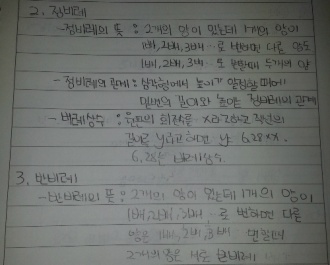 2. 정비례
-정비례의 뜻 : 2개의 양이 있는데 1개의 양이
1배, 2배, 3배…로 변하면 다른 양도
1배, 2배, 3배…로 변할때 두개의 양
-정비례의 관계 : 삼각형에서 높이가 일정할 때에
밑변의 길이와 넓이는 정비례의 관계
-비례상수 : 원판의 회전수 x와 감아 올린
길이를 y라고 하면 y는 6.28×x.
6.28은 비례상수.
3. 반비례
-반비례의 뜻 : 2개의 양이 있는데 1개의 양이
1배, 2배, 3배…로 변하면 다른
양은 1배, 2배, 3배
2개의 양은 서로 반비례